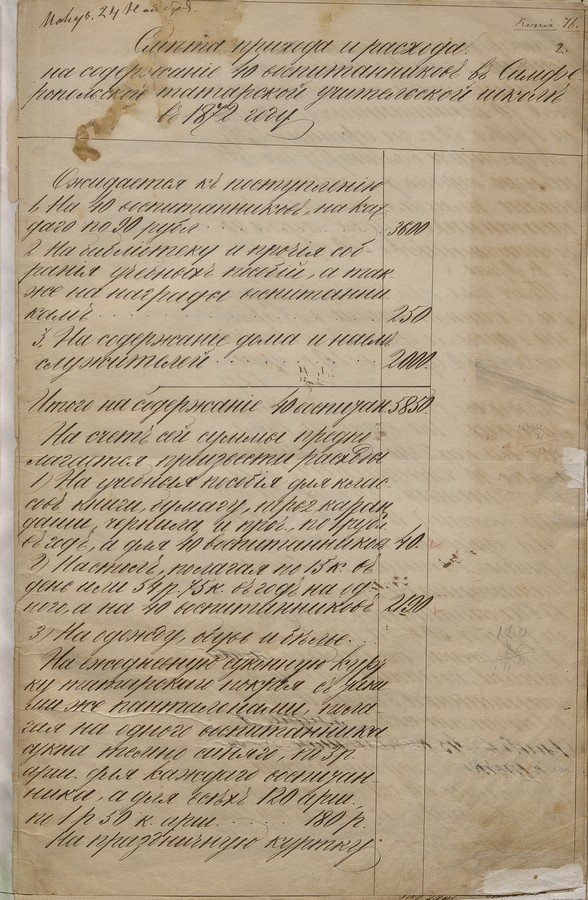 Копія
2.
Смѣта прихода и расхода
на содержаніе 40 воспитанниковъ въ Симфе
ропольской татарской учительской школѣ
въ 1872 году
Ожидается къ поступленію
1. На 40 воспитанниковъ, на каж
даго по 90 рубл 3600
2 На библіотеку и прочія соб-
ранія учебныхъ пособій, а так
же на награды воспитанни
камъ 250
3. На содержаніе дома и наемъ
служителей 2000.
Итого на содержаніе 40 воспитан. 5850.
На счетъ сей суммы предпо
лагается произвести расходы
1) На учебныя пособія для клас
совъ, книги, бумагу, перья каран
даши, чернила, и проч., по 1 рубл.
въ годъ, а для 40 воспитанниковъ 40.
2) На столъ, полагая по 15 к. въ
день или 54 р. 75 к. въ годъ на од
ного, а на 40 воспитанниковъ 2190
3) На одежду, обувь и бѣлье.
На ежедневную суконную курт
ку татарскаго покроя съ
же панталонами, пола
гая на одного воспитанника
сукна темно синяго, по 3
арш. для каждаго воспитан
ника, а для всѣхъ 120 арш.,
по 1 р 50 к. арш. 180 р.
На праздничную куртку
120